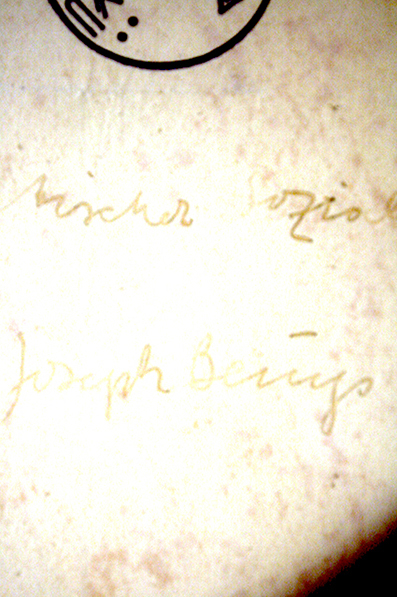 tischer Sozial
Joseph Beuys